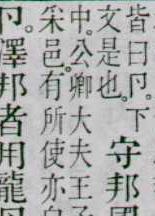 皆曰卪。下
文是也。
守邦國
中。公卿大夫王子
采邑。有所使亦自
卪。澤邦者用龍